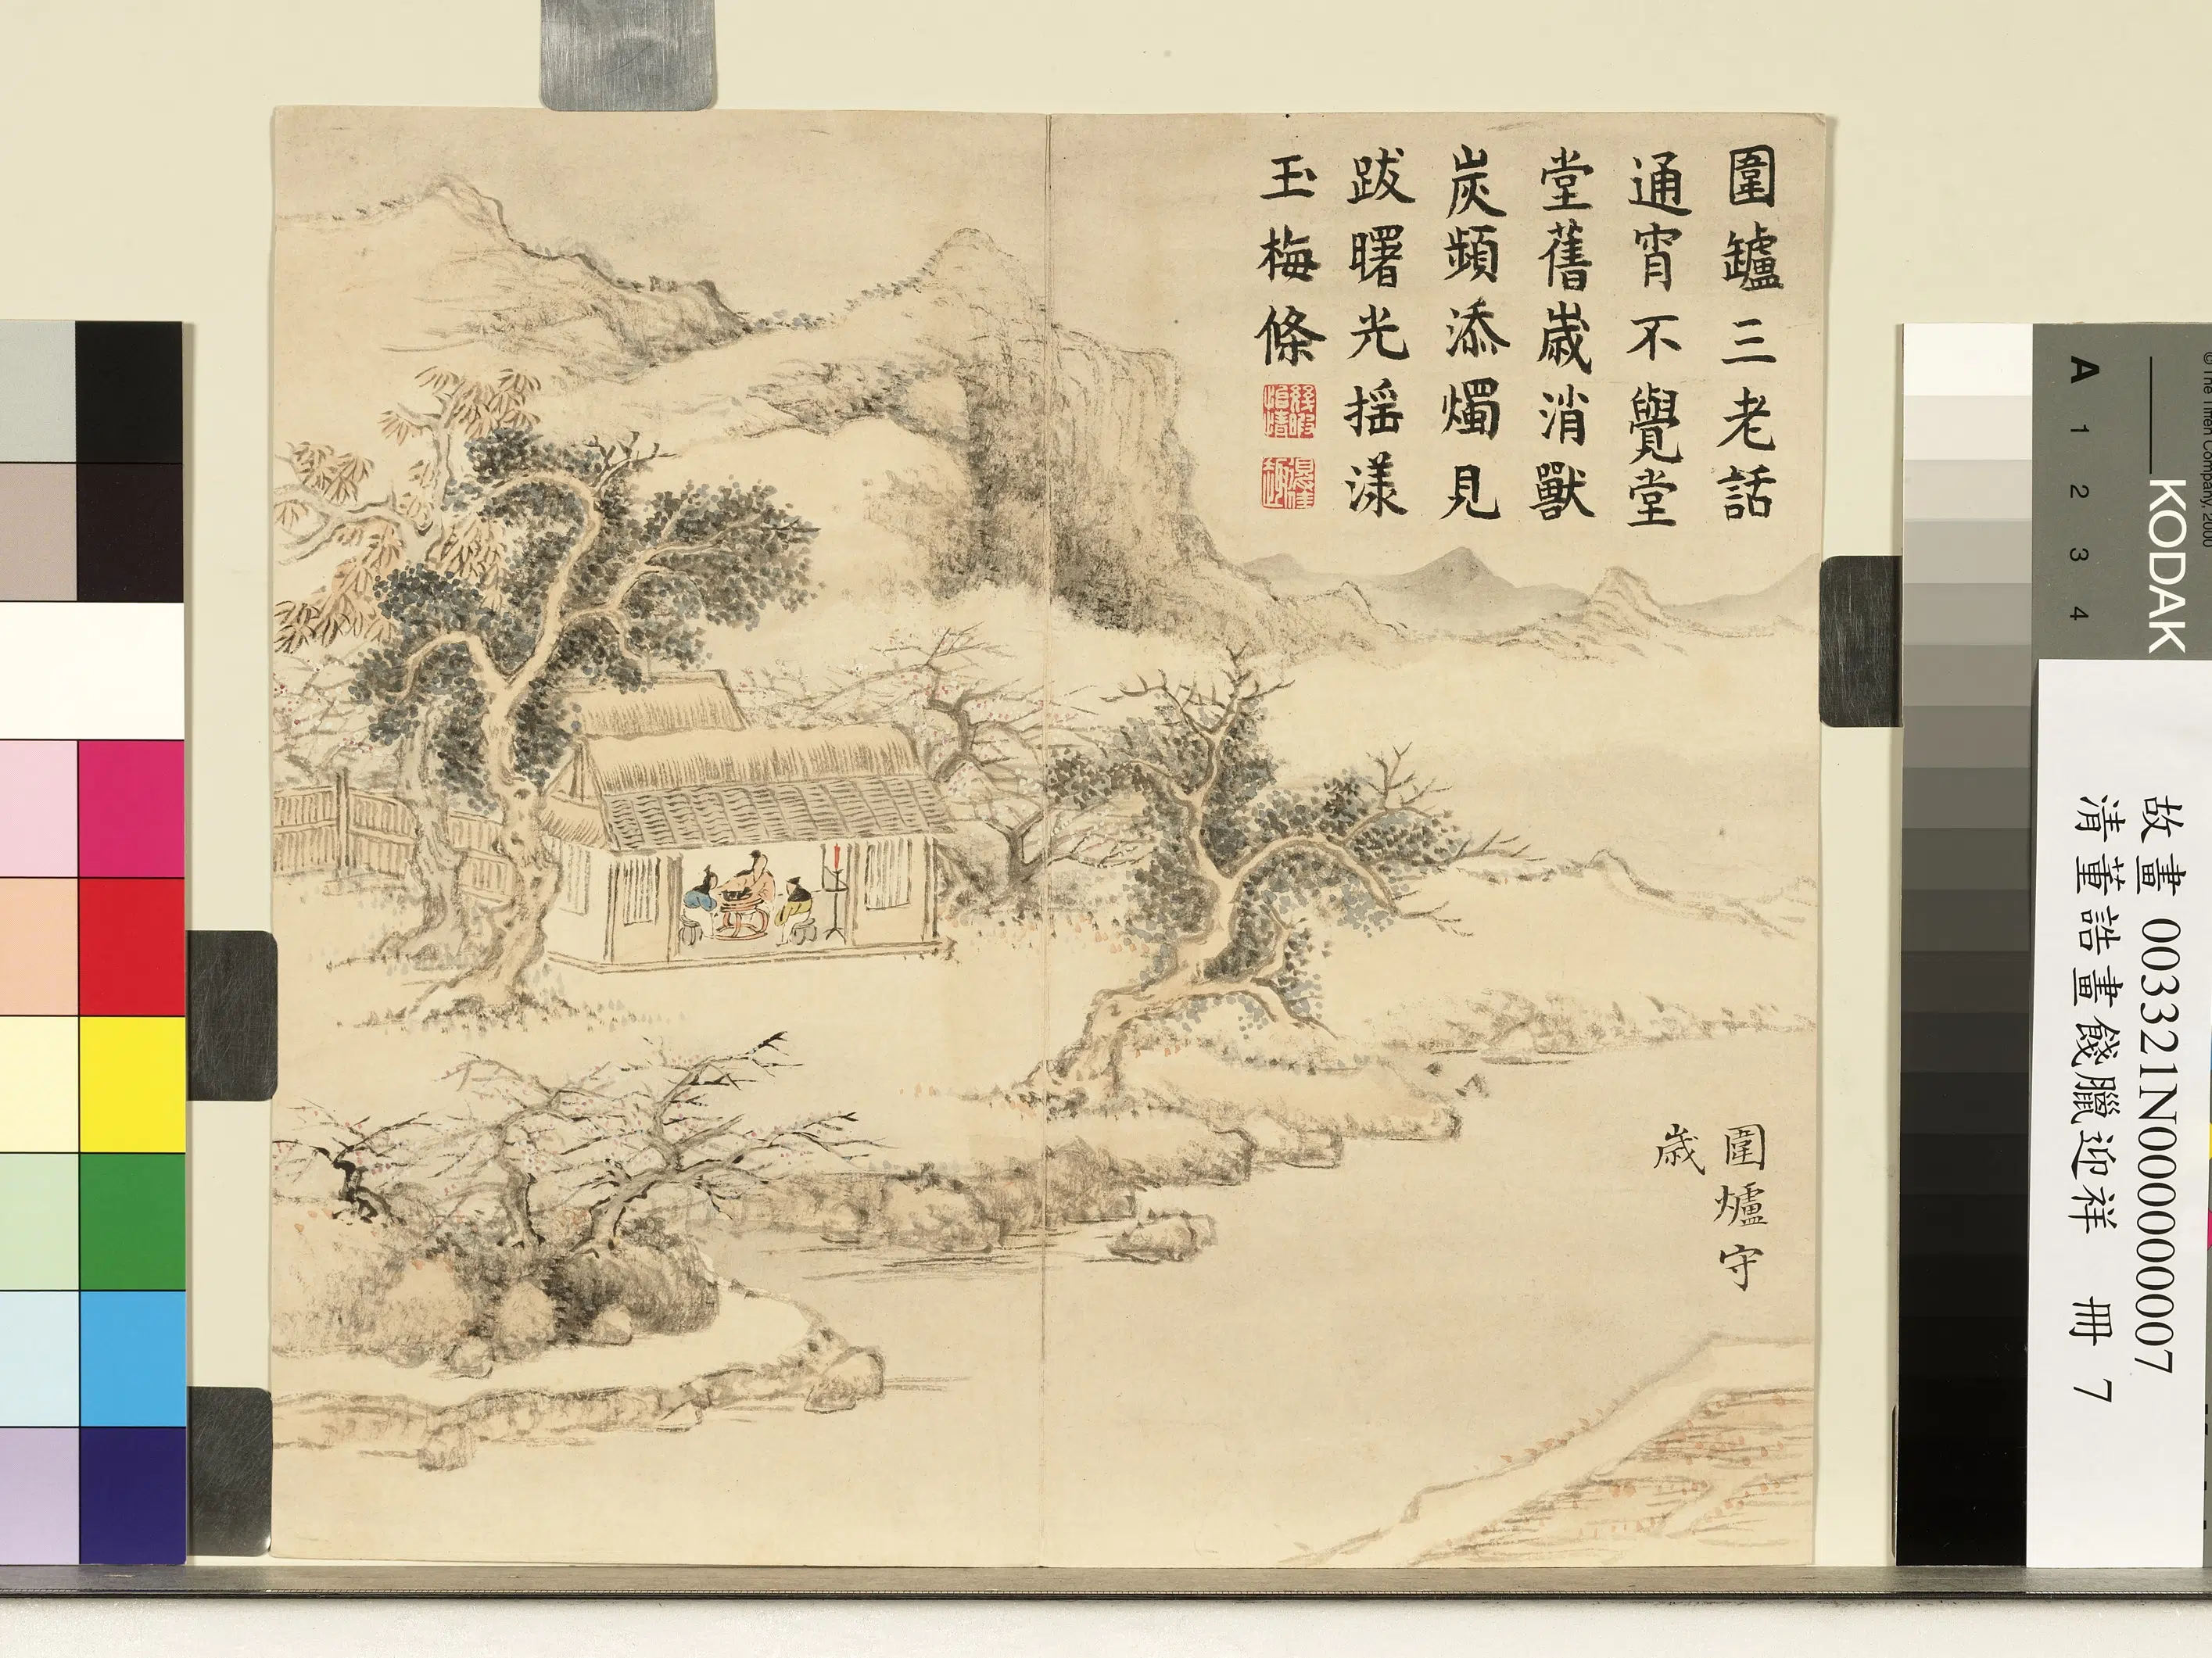 圍鑪三老話
通宵不覺堂
堂舊歲消獸
炭頻添燭見
跋曙光搖漾
玉梅條
圍爐守
歲
KODAK
A 1 2 3 4
故畫 003321N000000007
清董誥畫餞臘迎祥 冊 7